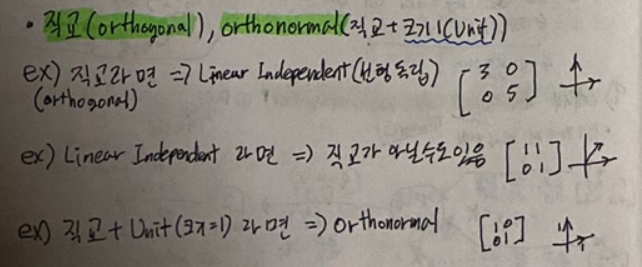 • 직교(orthogonal), orthonormal(직교+크기1(Unit))
ex) 직교라면 => Linear Independent(선형독립) [3 0
(orthogonal) 0 5]
ex) Linear Independent 라면 => 직교가 아닐수도있음 [1 1
0 1]
ex) 직교+Unit(크기=1) 라면 => Orthonormal [1 0
0 1]